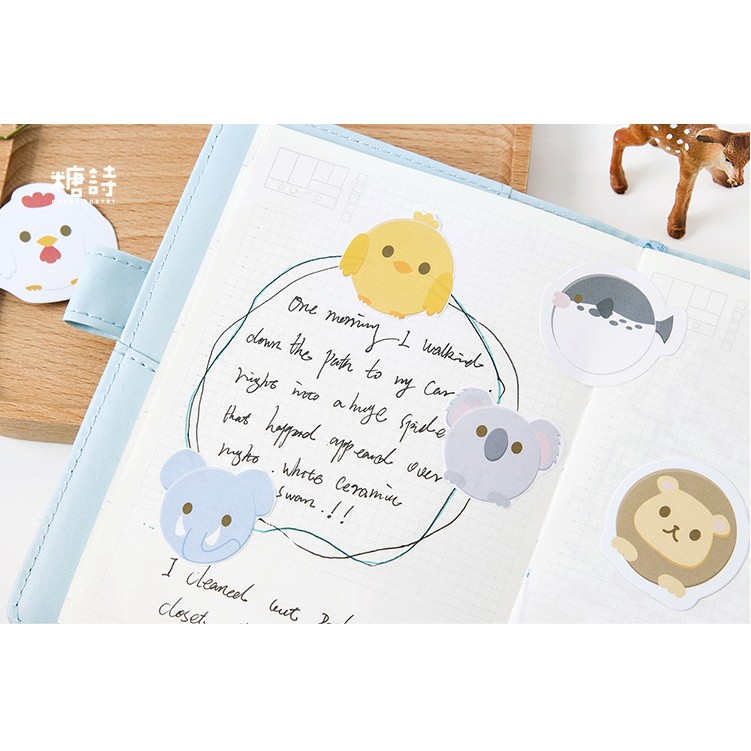 糖詩
One morning I walking
down the path to my car
right into a huge spide
that happend appeard over
night. White ceramic
swan.!!
I cleaned out
closet